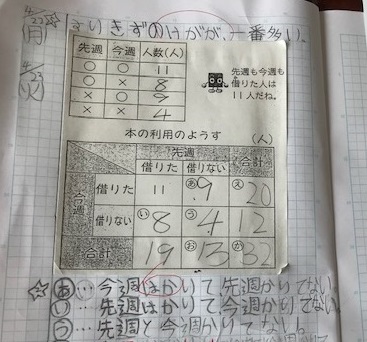 4/22 (月)
☆きりきずのけがが、一番多い。
先週 今週 人数(人)
○ ○ 11
○ × 8
× ○ 9
× × 4
先週も今週も
借りた人は
11人だね。
4/23 (火)
本の利用のようす (人)
先週 合計
借りた 借りない
今週 借りた 11 あ9 え20
借りない い8 う4 12
合計 19 お13 か32
☆あ…今週はかりて、先週かりてない。
い…先週はかりて、今週かりてない。
う…先週と今週かりてない。